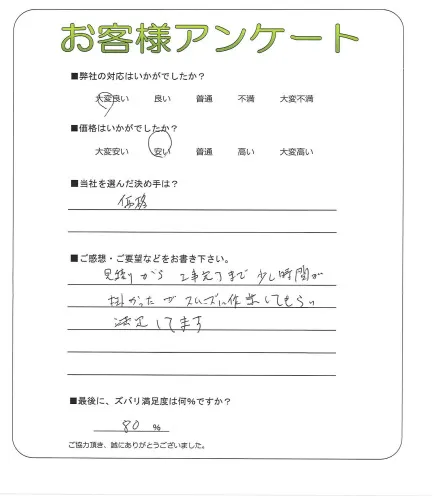 お客様アンケート
■弊社の対応はいかがでしたか?
大変良い 良い 普通 不満 大変不満
■価格はいかがでしたか?
大変安い 安い 普通 高い 大変高い
■当社を選んだ決め手は?
価格
■ご感想・ご要望などをお書き下さい。
見積りから 工事完了まで 少し時間が
掛かったが スムーズに作業してもらい
してます
■最後に、ズバリ満足度は何%ですか?
80 %
ご協力頂き、誠にありがとうございました。